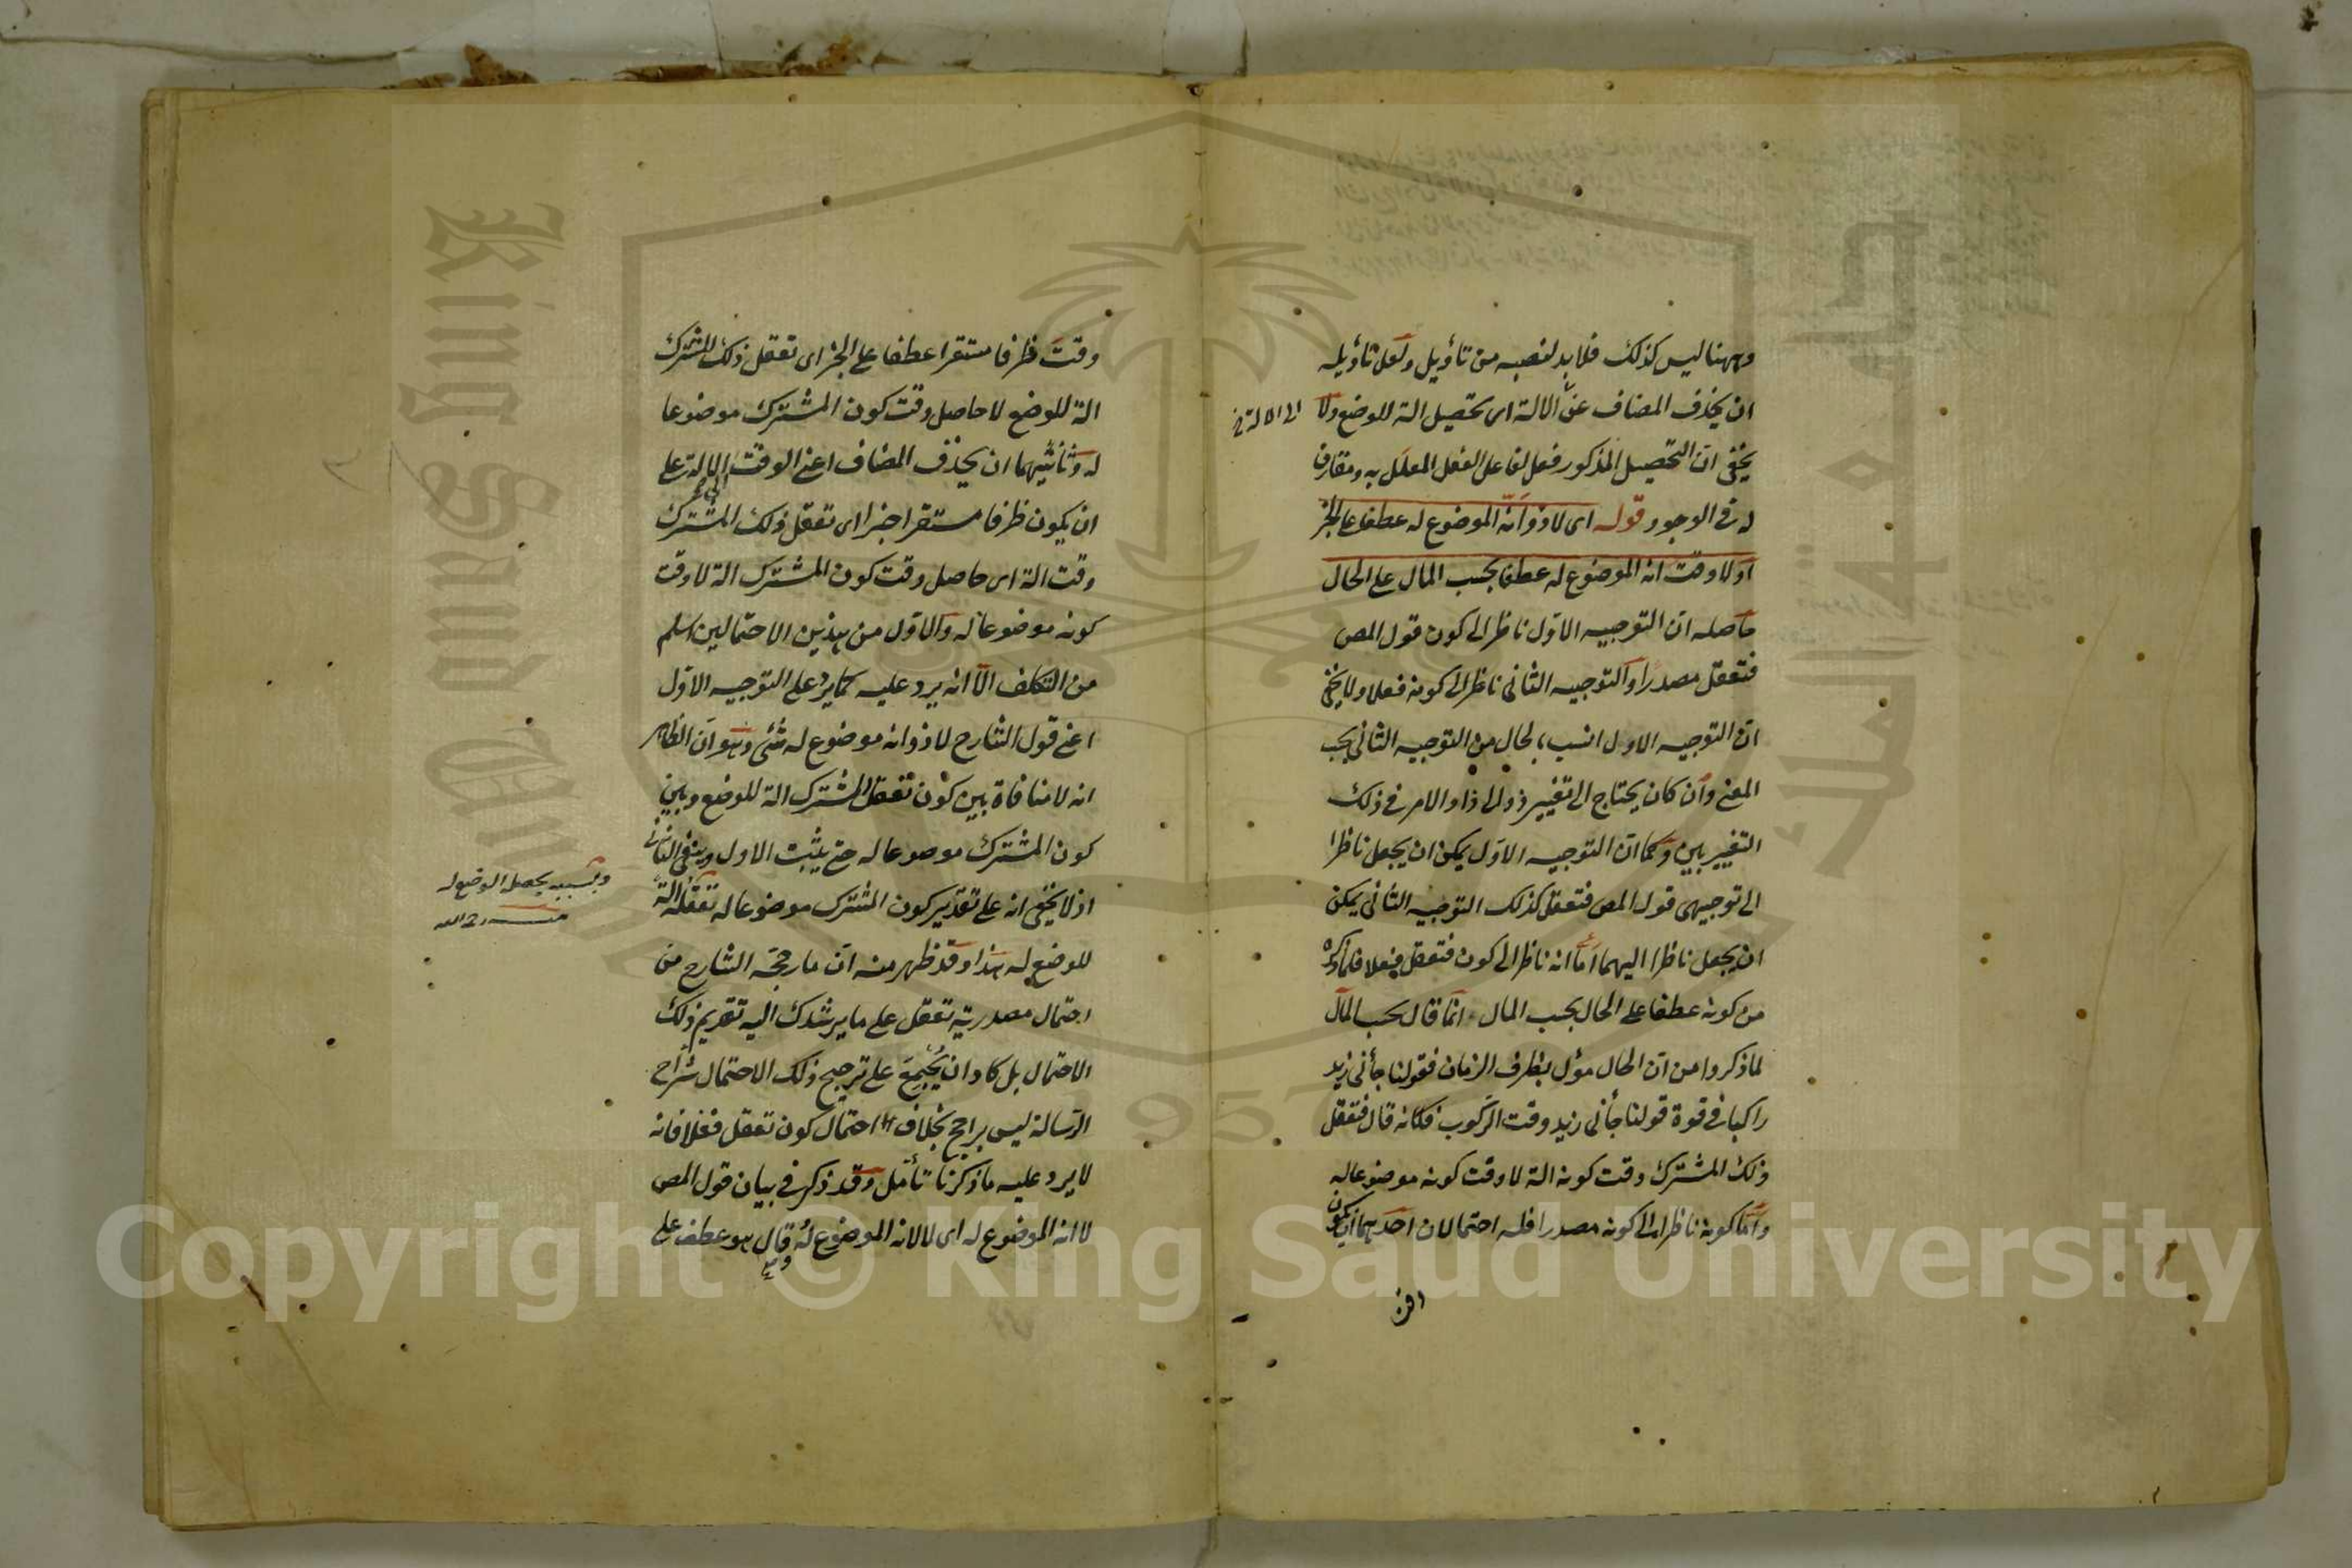 وههنا ليس كذلك فلا بد لنصبه من تأويل ولعل تأويله
ان يحذف المضاف عن الالة اى تحصيل الة للوضع ولا
يخفى ان التحصيل المذكور فعل لفاعل الفعل المعلل به ومقارن
له فى الوجود قوله اى لا ذو انه الموضوع له عطفا على الجز
او لا وقت انه الموضوع له عطفا بحسب المال على الحال
حاصله ان التوجيه الاول ناظر الى كون قول المص
فتعقل مصدرا والتوجيه الثانى ناظر الى كونه فعلا ولا يخفى
ان التوجيه الاول انسب بالحال من التوجيه الثانى بحسب
المعنى وان كان يحتاج الى تغيير ذو الى ذا والامر فى ذلك
التغيير بين وكما ان التوجيه الاول يمكن ان يجعل ناظرا
الى توجيهى قول المص فتعقل كذلك التوجيه الثانى يمكن
ان يجعل ناظرا اليهما اما انه ناظر الى كون فتعقل فعلا فلما ذكره
من كونه عطفا على الحال بحسب المال انما قال بحسب المآل
لما ذكروا من ان الحال مؤل بظرف الزمان فقولنا جأنى زيد
راكبا فى قوة قولنا جأنى زيد وقت الركوب فكانه قال فتعقل
ذلك المشترك وقت كونه الة لا وقت كونه موضوعا له
واما كونه ناظرا الى كونه مصدرا فله احتمالان احدهما ان يكون
وقت ظرفا مستقرا عطفا على الجز اى تعقل ذلك المشترك
الة للوضع لا حاصل وقت كون المشترك موضوعا
له وثانيهما ان يحذف المضاف اعنى الوقت الى الالة على
ان يكون ظرفا مستقرا خبرا اى تعقل ذلك المشترك
وقت الة اى حاصل وقت كون المشترك الة لا وقت
كونه موضوعا له والاول من هذين الاحتمالين اسلم
من التكلف الا انه يرد عليه كما يرد على التوجيه الاول
اعنى قول الشارح لا ذو انه موضوع له شئ وهو ان الظاهر
انه لا منافاة بين كون تعقل المشترك الة للوضع وبين
كون المشترك موضوعا له حتى يثبت الاول وينفى الثانى
اذ لا يخفى انه على تقدير كون المشترك موضوعا له تعقله الة
للوضع له هذا وقد ظهر منه ان ما رجحه الشارح من
احتمال مصدرية تعقل على ما يرشدك اليه تقديم ذلك
الاحتمال بل كاد ان يجمع على ترجيح ذلك الاحتمال شراح
الرسالة ليس براجح بخلاف احتمال كون تعقل فعلا فانه
لا يرد عليه ما ذكرنا تأمل وقد ذكر فى بيان قول المص
لا انه الموضوع له اى لا لانه الموضوع له وقال هو عطف على
وبسببه يحصل الوضع له